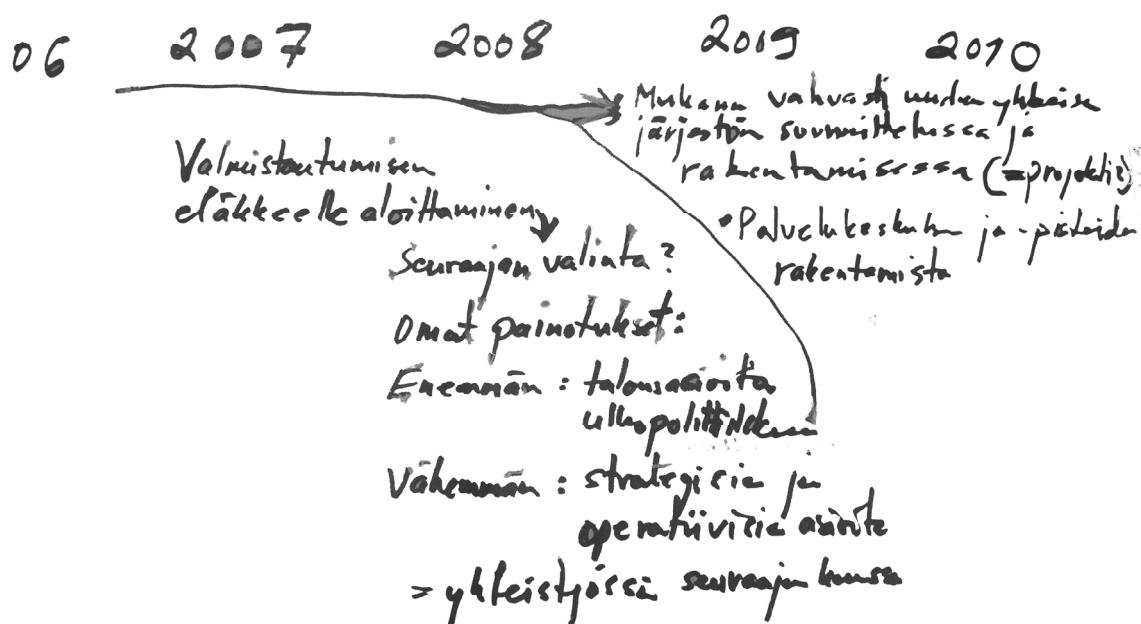 06 2007 2008 2009 2010
Mukana vahvasti uuden yhteisen
järjestön suunnittelussa ja
rakentamisessa (=projektit)
• Palvelukeskuksen ja -pisteiden
rakentamista
Valmistautumisen
eläkkeelle aloittaminen
Seuraajan valinta?
Omat painotukset:
Enemmän: talousasioita
ulkopolitiikkaa
Vähemmän: strategisia ja
operatiivisia asioita
> yhteistyössä seuraajan kanssa